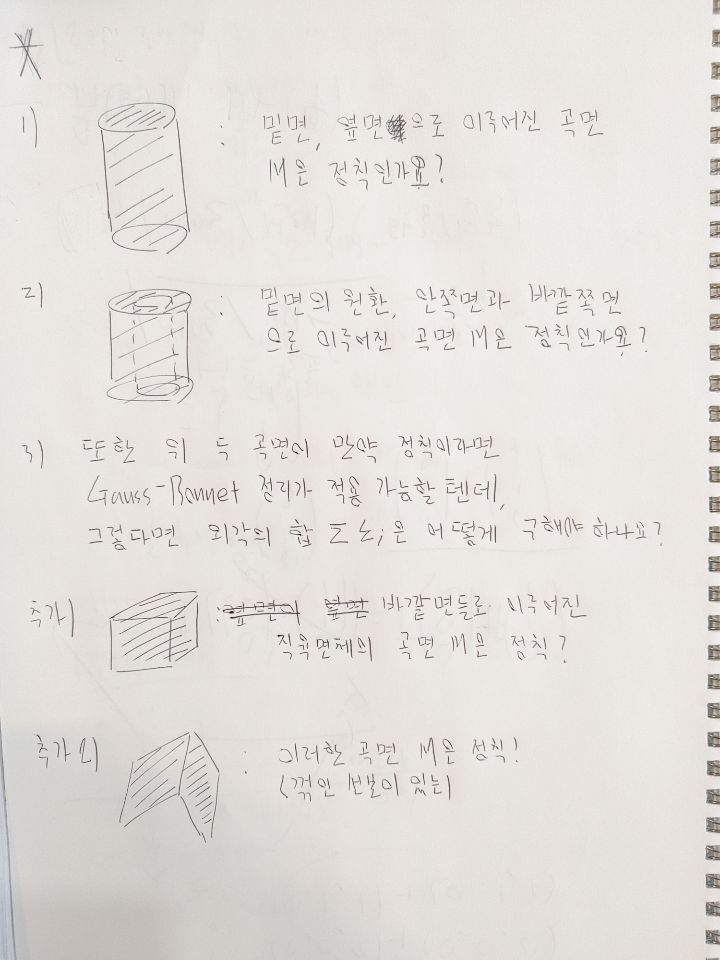 1) : 밑면, 옆면으로 이루어진 곡면
M은 정칙인가요?
2) : 밑면의 원환, 안쪽면과 바깥쪽면
으로 이루어진 곡면 M은 정칙인가요?
3) 또한 위 두 곡면이 만약 정칙이라면
Gauss-Bonnet 정리가 적용 가능할텐데,
그렇다면 외각의 합 Σ∠i은 어떻게 구해야 하나요?
추가1) : 바깥면들로 이루어진
직육면체의 곡면 M은 정칙?
추가2) : 이러한 곡면 M은 정칙?
(꺾인 선분이 있는)